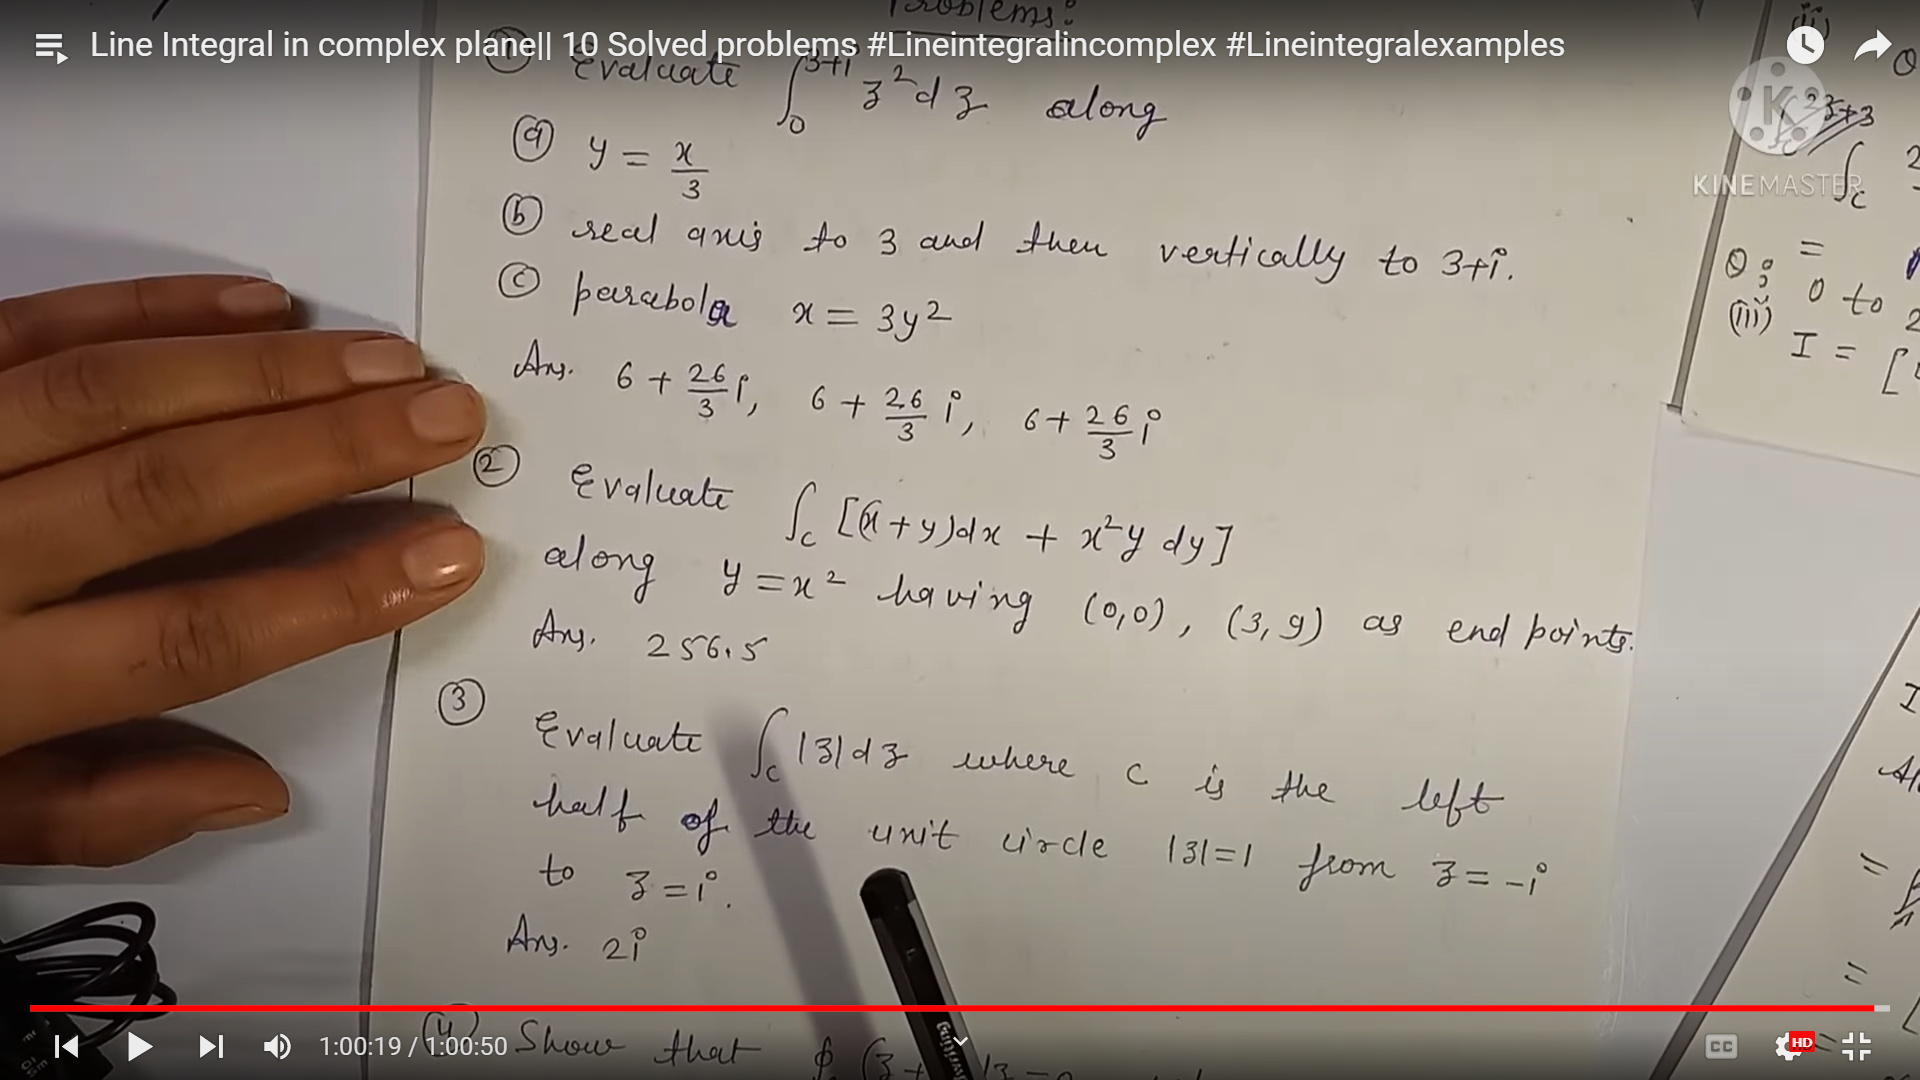 Problems:
Line Integral in complex plane|| 10 Solved problems #Lineintegralincomplex #Lineintegralexamples
① Evaluate ∫₀³⁺ⁱ z²dz along
ⓐ y = x/3
ⓑ real axis to 3 and then vertically to 3+i.
ⓒ parabola x = 3y²
Ans. 6 + 26/3 i, 6 + 26/3 i, 6 + 26/3 i
② Evaluate ∫c [(x+y)dx + x²y dy]
along y = x² having (0,0), (3,9) as end points.
Ans. 256.5
③ Evaluate ∫c |z|dz where c is the left
half of the unit circle |z|=1 from z = -i
to z = i.
Ans. 2i
④ Show that
KINEMASTER
(ii)
2z+3
∫c
=
0 to 2
(iii)
I = [
1:00:19 / 1:00:50
CC
HD